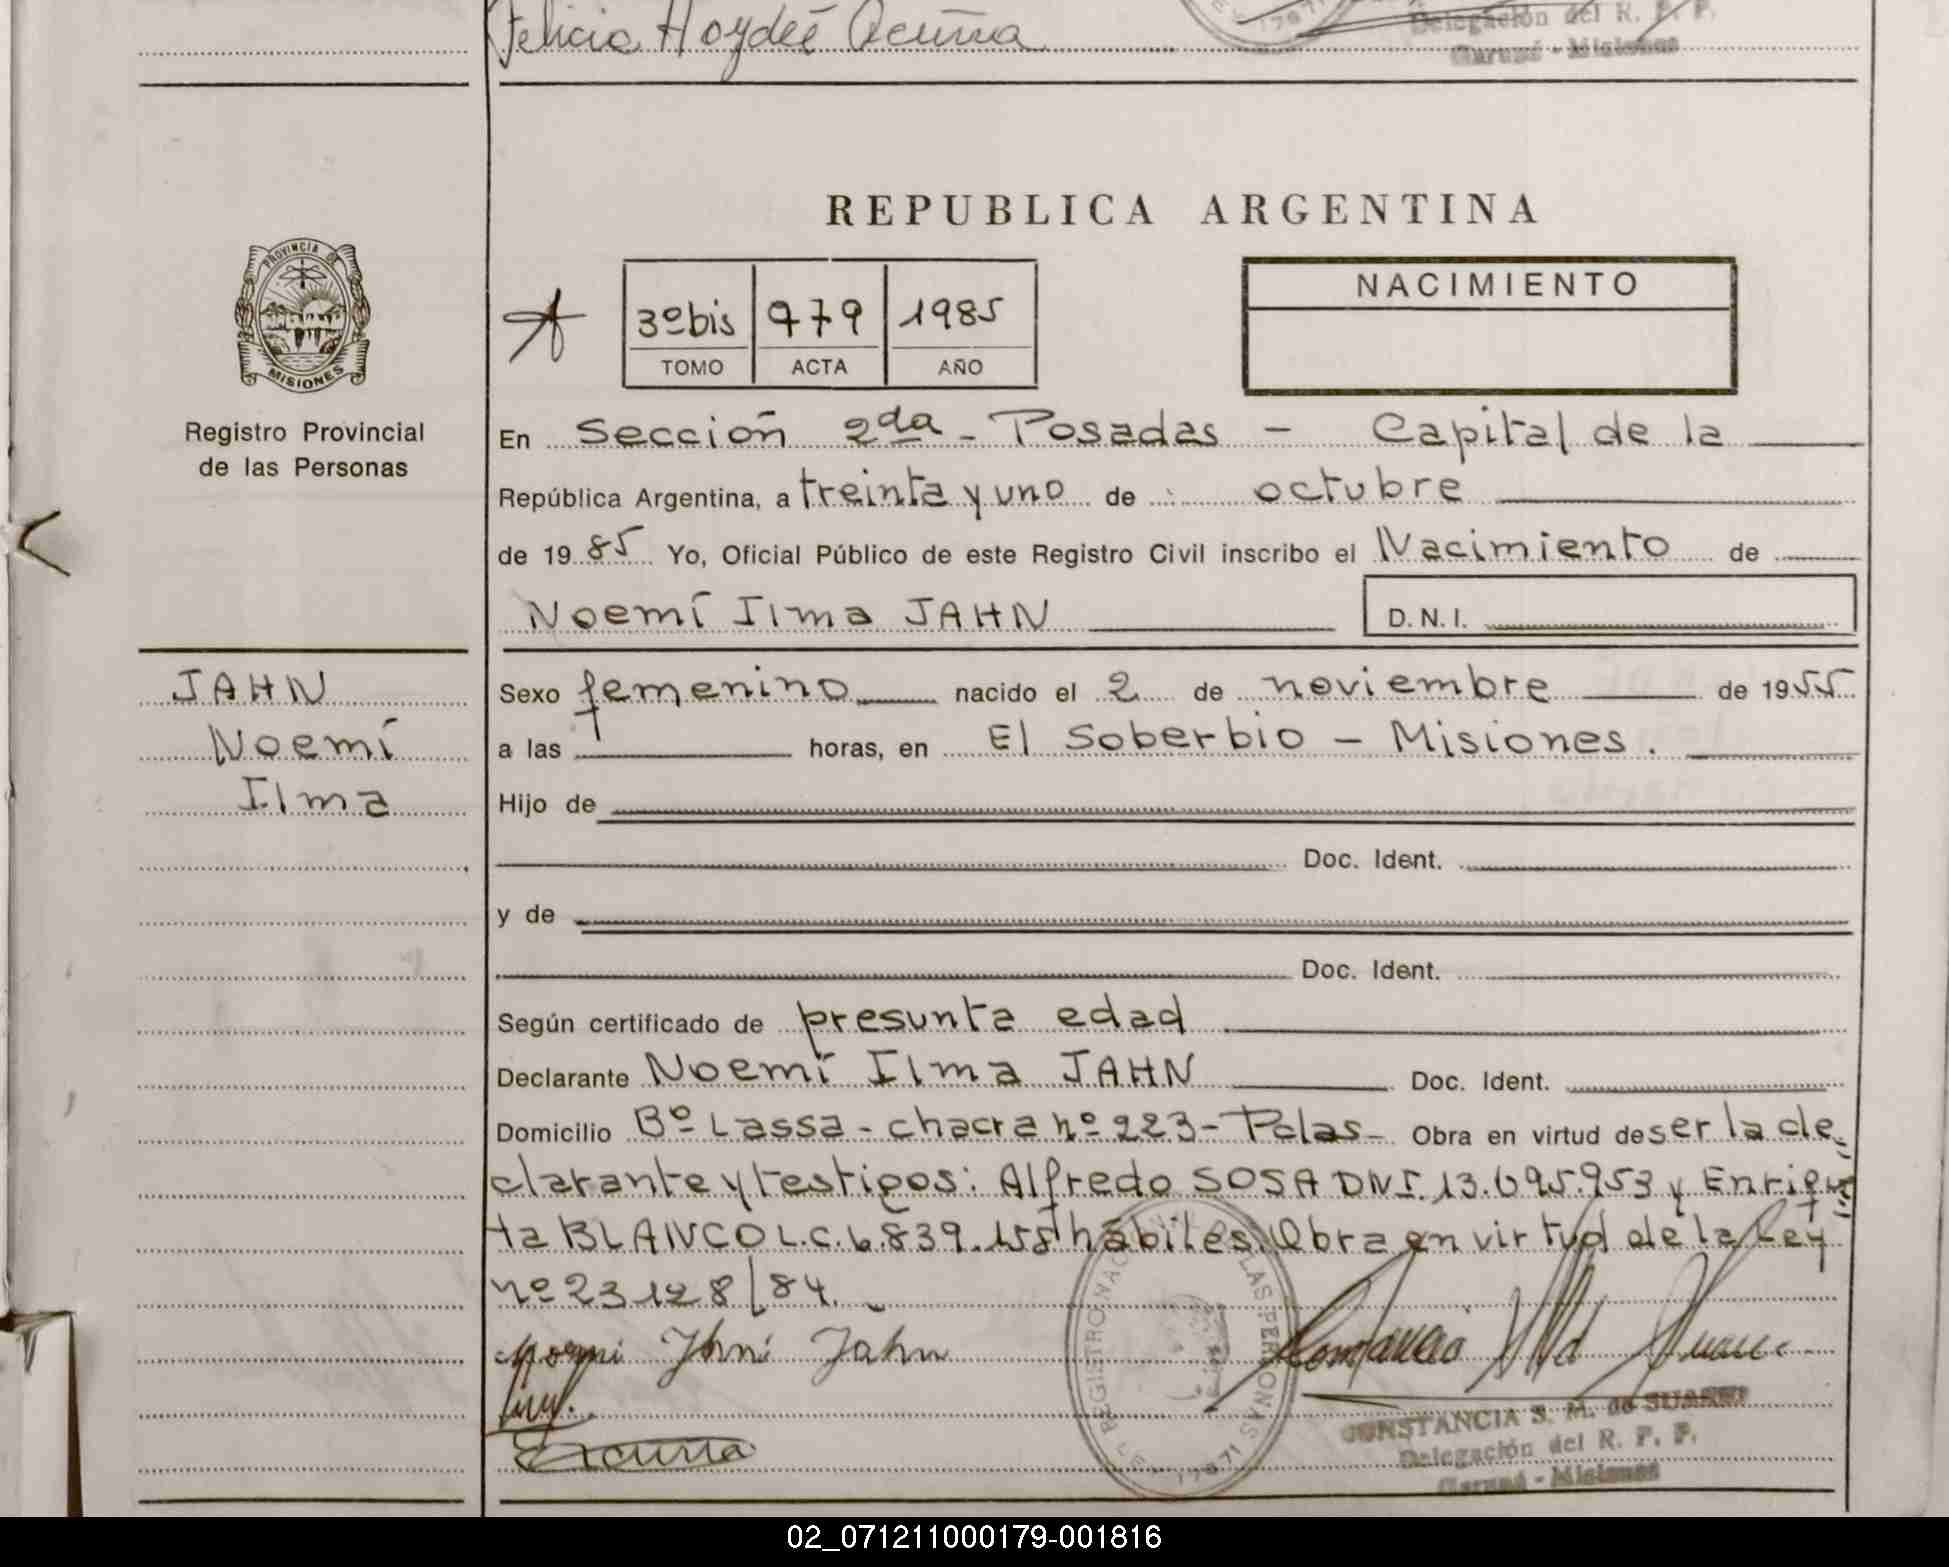 Felicia Haydeé Acuña
Delegación del R. P. P.
Garupá - Misiones
REPUBLICA ARGENTINA
PROVINCIA DE
MISIONES
Registro Provincial
de las Personas
3º bis 979 1985
TOMO ACTA AÑO
NACIMIENTO
En Sección 2da - Posadas - Capital de la
República Argentina, a treinta y uno de octubre
de 19 85 Yo, Oficial Público de este Registro Civil inscribo el Nacimiento de
Noemí Ilma JAHN D.N.I.
JAHN
Noemí
Ilma
Sexo femenino nacido el 2 de noviembre de 1955
a las horas, en El Soberbio - Misiones.
Hijo de
Doc. Ident.
y de
Doc. Ident.
Según certificado de presunta edad
Declarante Noemí Ilma JAHN Doc. Ident.
Domicilio Bº Lassa - chacra nº 223 - Pdas - Obra en virtud de ser la de=
clarante y testigos: Alfredo SOSA DNI. 13.695.953 y Enrique=
ta BLANCO L.C. 6.839.158 hábiles. Obra en virtud de la Ley
nº 23128/84.
Jahn
REGISTRO NACIONAL DE LAS PERSONAS
LEY 17671
CONSTANCIA S. M. de SUAREZ
Delegación del R. P. P.
Garupá - Misiones
02_071211000179-001816